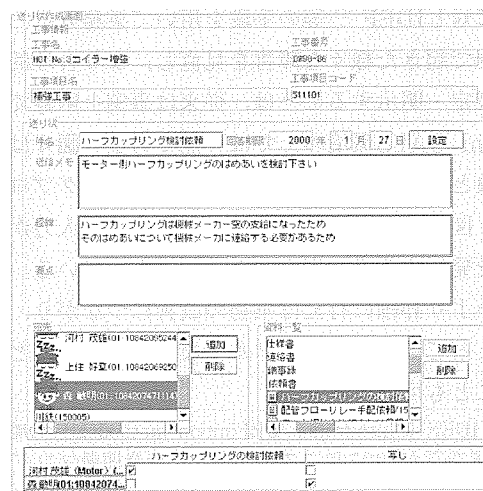 送り状作成画面
工事情報
工事名
工事番号
HOT No.3コイラー増強
工事項目名
工事項目コード
補強工事
511101
送り状
件名 ハーフカップリング検討依頼 回答期限 2000 年 1 月 27 日 設定
送信メモ モーター側ハーフカップリングのはめあいを検討下さい
経緯 ハーフカップリングは機械メーカー室の支給になったため
そのはめあいについて機械メーカに連絡する必要があるため
要点
宛先
資料一覧
河村 茂雄(01:10842095244
追加
上住 好章(01:10842069250
削除
森 敏明(01:1084207471114)
川鉄(150005)
仕様書
連絡書
議事録
依頼書
ハーフカップリングの検討依
配管フローリレー手配依頼/15
追加
削除
ハーフカップリングの検討依頼 写し
河村 茂雄 (Motor) (...
森 敏明(01:10842074...